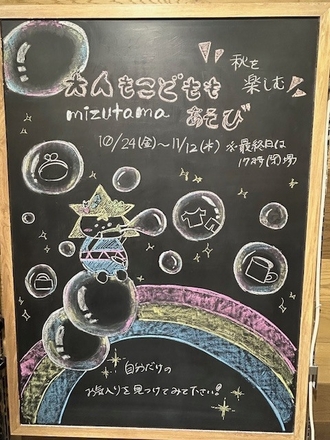 秋を
楽しむ
大人もこどもも
mizutama あそび
10/24(金)〜11/12(水) ※最終日は
17時閉場
自分だけの
お気入りを見つけてみて下さい!